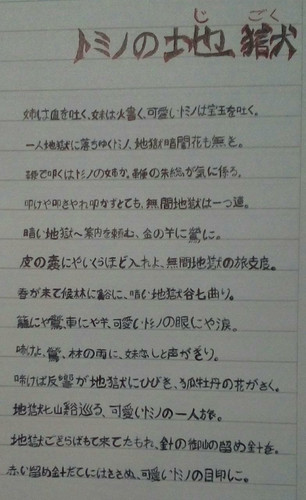 じごく
トミノの地獄
姉は血を吐く、妹は火吐く、可愛いトミノは宝玉を吐く。
一人地獄に落ちゆくトミノ、地獄暗闇花も無き。
鞭で叩くはトミノの姉か、鞭の朱総が気に係る。
叩けや叩きやれ叩かずとても、無間地獄は一つ道。
暗い地獄へ案内を頼む、金の羊に鶯に。
皮の嚢にやいくらほど入れよ、無間地獄の旅支度。
春が来て候林に谿に、暗い地獄谷七曲り。
籠にや鶯、車にや羊、可愛いトミノの眼にや涙。
啼けよ、鶯、林の雨に、妹恋しと声がぎり。
啼けば反響が地獄にひびき、狐牡丹の花がさく。
地獄七山谿巡る、可愛いトミノの一人旅。
地獄ござらばもて来てたもれ、針の御山の留め針を。
赤い留め針だてにはささぬ、可愛いトミノの目印に。